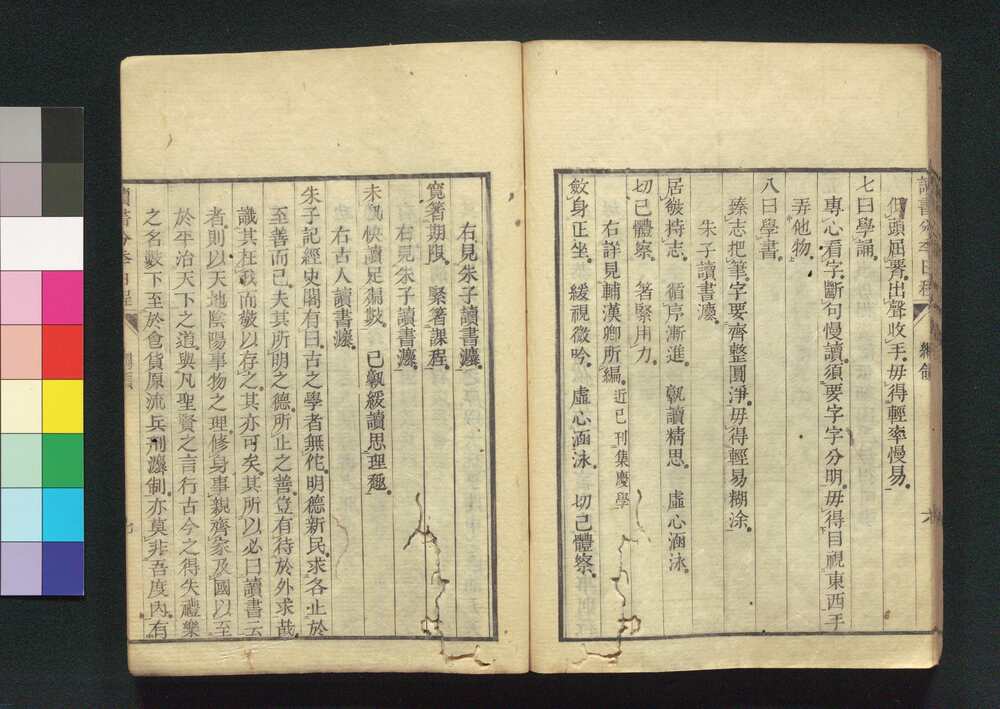 讀書分年日程　綱領　六
低頭屈膝出聲收手毋得輕率慢易
七曰學誦
專心看字斷句慢讀須要字字分明毋得目視東西手
弄他物
八曰學書
臻志把筆字要齊整圓淨毋得輕易糊塗
朱子讀書灋
居敬持志　循序漸進　熟讀精思　虛心涵泳
切己體察　著緊用力
右詳見輔漢卿所編近已刊集慶學
斂身正坐　緩視微吟　虛心涵泳　切己體察
右見朱子讀書灋
寬著期限　緊著課程
右見朱子讀書灋
未熟快讀足徧數　已熟緩讀思理趣
右古人讀書灋
朱子記經史閣有曰古之學者無佗明德新民求各止於
至善而已夫其所明之德所止之善豈有待於外求哉
識其在我而敬以存之其亦可矣其所以必曰讀書云
者則以天地陰陽事物之理修身事親齊家及國以至
於平治天下之道與凡聖賢之言行古今之得失禮樂
之名數下至於食貨原流兵刑灋制亦莫非吾度內有
讀書分年日程　綱領　七